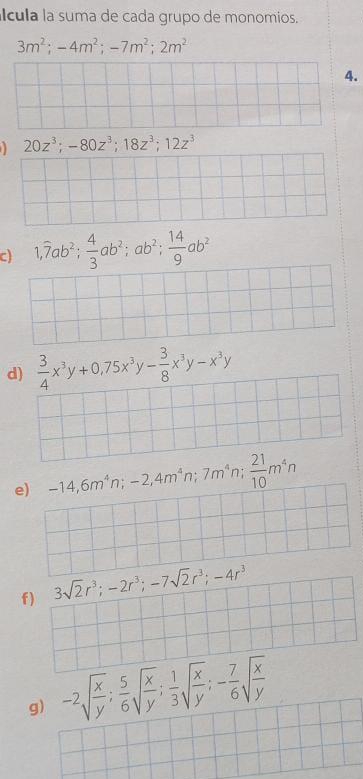 lcula la suma de cada grupo de monomios.
3m²; −4m²; −7m²; 2m²
4.
) 20z³; −80z³; 18z³; 12z³
c) 1,7̂ab²; 4/3 ab²; ab²; 14/9 ab²
d) 3/4 x³y + 0,75x³y − 3/8 x³y − x³y
e) −14,6m⁴n; −2,4m⁴n; 7m⁴n; 21/10 m⁴n
f) 3√2 r³; −2r³; −7√2 r³; −4r³
g) −2√(x/y); 5/6 √(x/y); 1/3 √(x/y); −7/6 √(x/y)